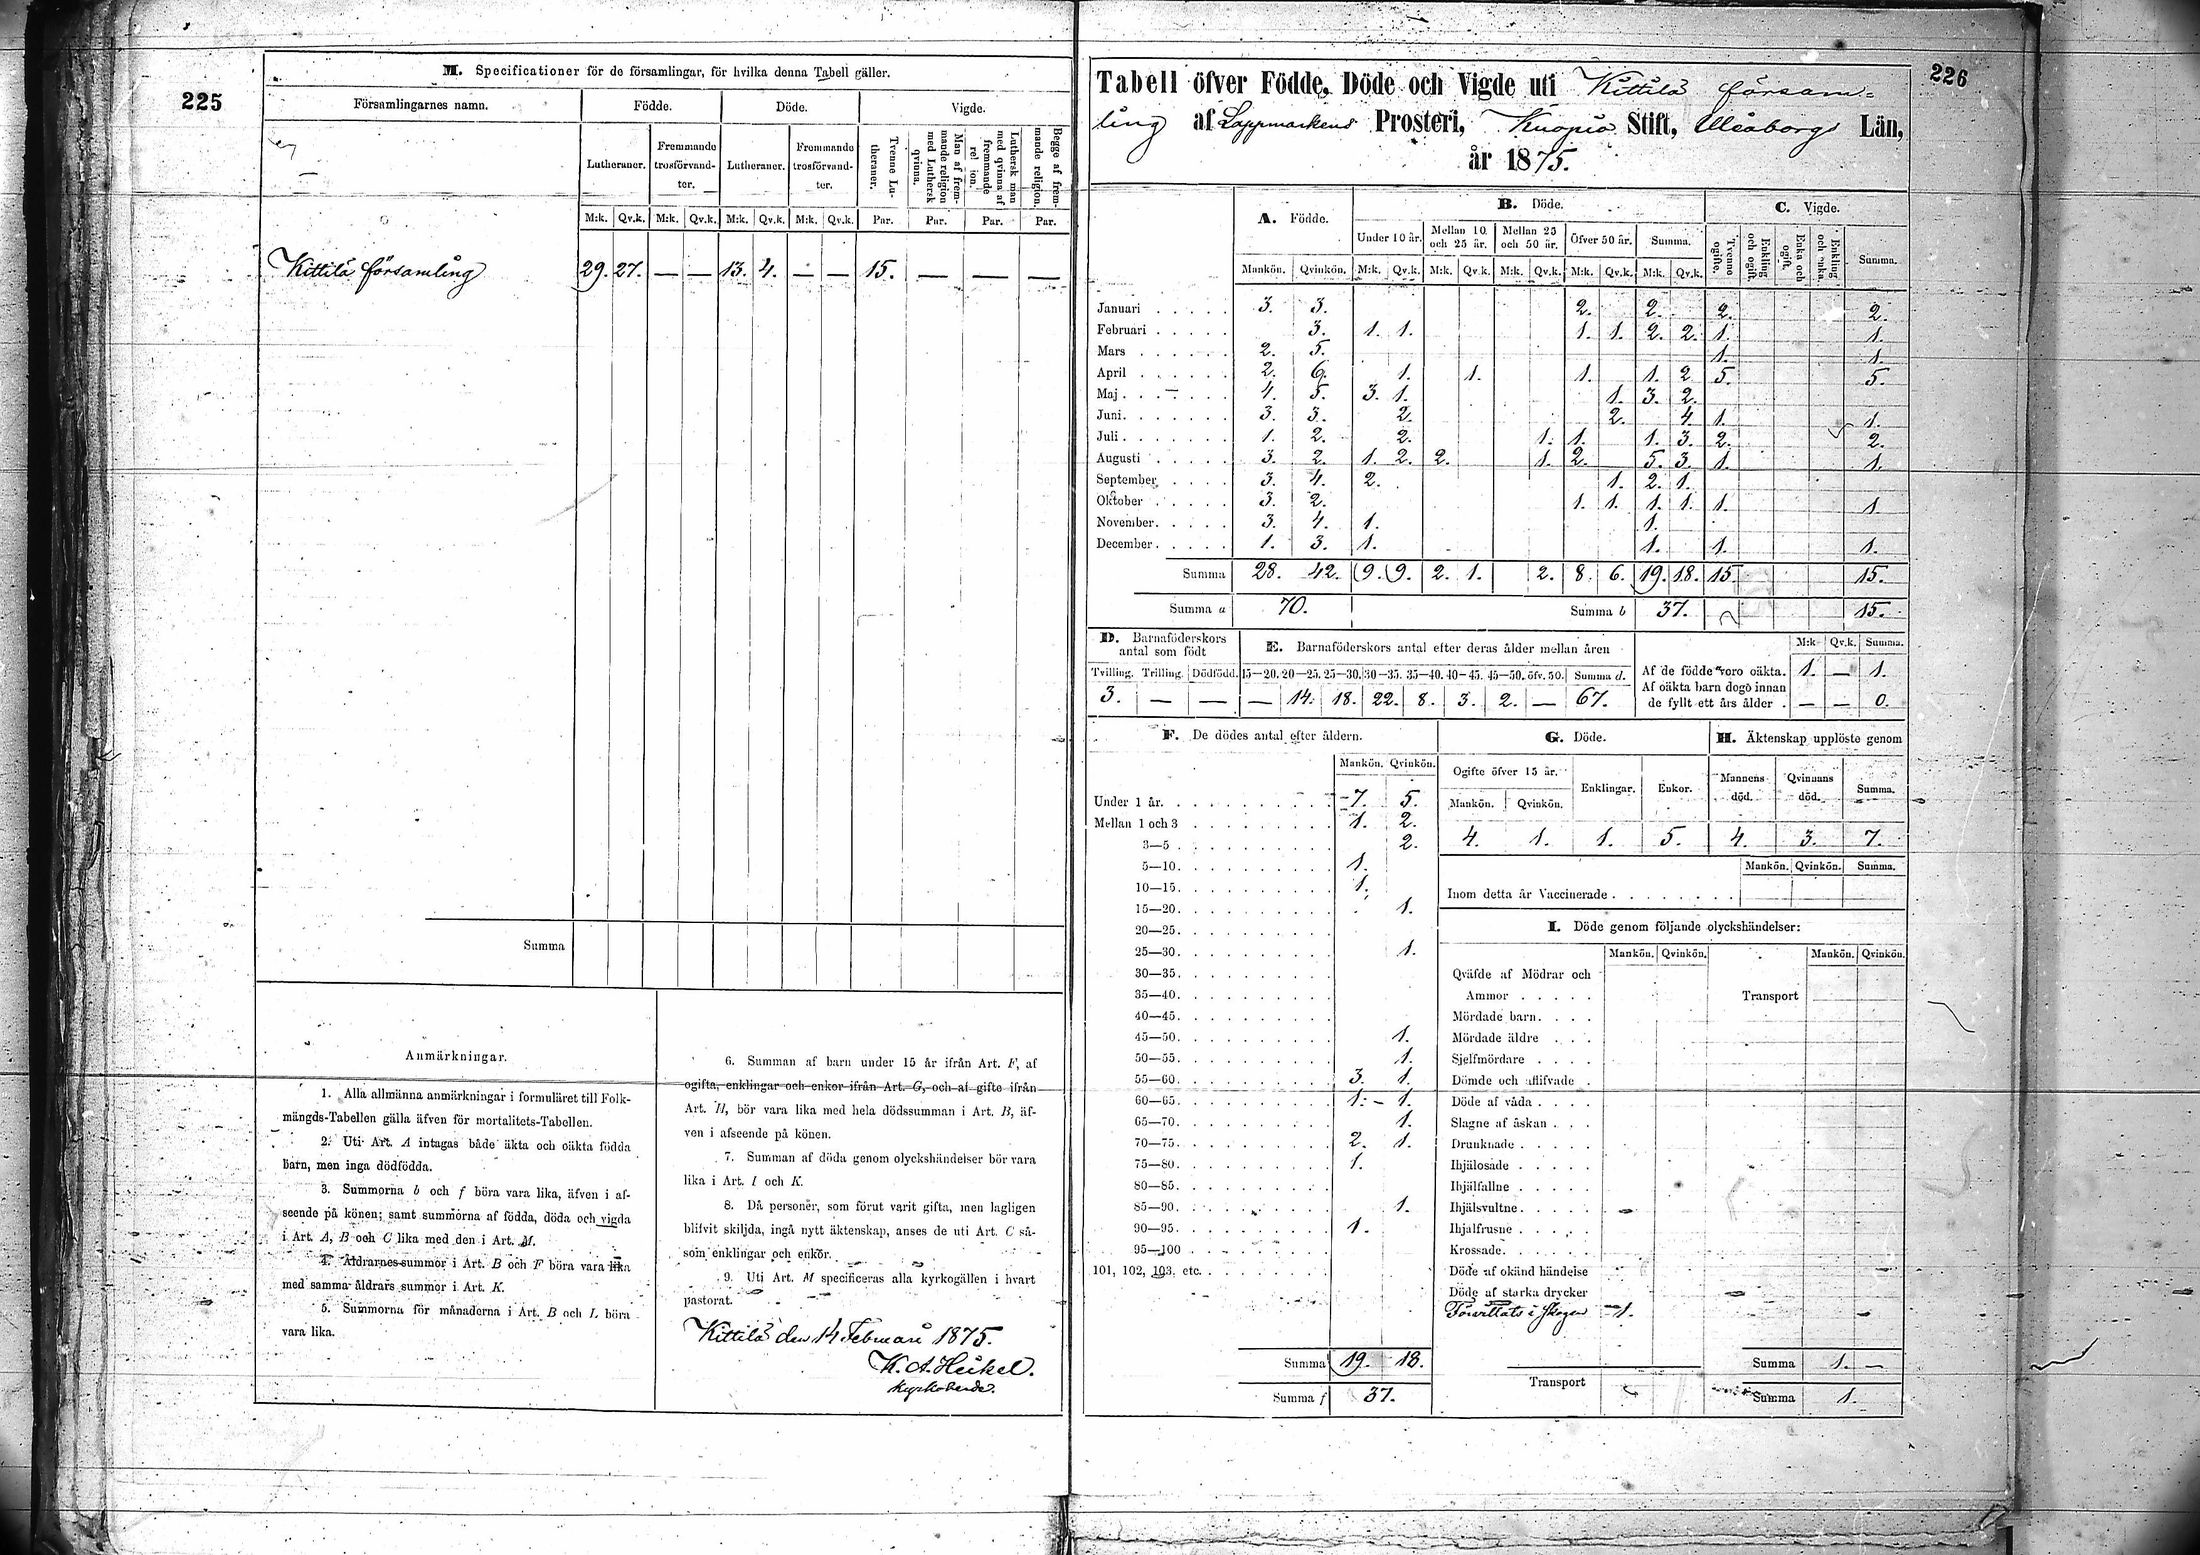 225
M. Specificationer för de församlingar, för hvilka denna Tabell gäller.
Församlingarnes namn. Födde. Döde. Vigde.
Lutheraner. Fremmande trosförvand-ter. Lutheraner. Fremmande trosförvand-ter. Tvenne Lu-theraner. Man af frem-mande religion med Luthersk qvinna. Luthersk man med qvinna af fremmande rel ion. Begge af frem-mande religion.
M:k. Qv.k. M:k. Qv.k. M:k. Qv.k. M:k. Qv.k. Par. Par. Par. Par.
Kittilä församling 29. 27. — — 13. 4. — — 15. — — —
Summa
Anmärkningar.
1. Alla allmänna anmärkningar i formuläret till Folk-
mängds-Tabellen gälla äfven för mortalitets-Tabellen.
2. Uti Art. A intagas både äkta och oäkta födda
barn, men inga dödfödda.
3. Summorna b och f böra vara lika, äfven i af-
seende på könen; samt summorna af födda, döda och vigda
i Art. A, B och C lika med den i Art. M.
4. Åldrarnes summor i Art. B och F böra vara lika
med samma åldrars summor i Art. K.
5. Summorna för månaderna i Art. B och L böra
vara lika.
6. Summan af barn under 15 år ifrån Art. F, af
ogifta, enklingar och enkor ifrån Art. G, och af gifte ifrån
Art. H, bör vara lika med hela dödssumman i Art. B, äf-
ven i afseende på könen.
7. Summan af döda genom olyckshändelser bör vara
lika i Art. I och K.
8. Då personer, som förut varit gifta, men lagligen
blifvit skiljda, ingå nytt äktenskap, anses de uti Art. C så-
som enklingar och enkor.
9. Uti Art. M specificeras alla kyrkogällen i hvart
pastorat.
Kittilä den 14 Februari 1875.
K. A. Heikel.
Kyrkoherde.
226
Tabell öfver Födde, Döde och Vigde uti Kittilä församl=
ling af Lappmarkens Prosteri, Kuopio Stift, Uleåborgs Län,
år 1875.
A. Födde. B. Döde. C. Vigde.
Under 10 år. Mellan 10 och 25 år. Mellan 25 och 50 år. Öfver 50 år. Summa. Tvenne ogifte. Enkling och ogift. Enka och ogift. Enkling och enka. Summa.
Mankön. Qvinkön. M:k. Qv.k. M:k. Qv.k. M:k. Qv.k. M:k. Qv.k. M:k. Qv.k.
Januari 3. 3. 2. 2. 2. 2.
Februari 3. 1. 1. 1. 1. 2. 2. 1. 1.
Mars 2. 5. 1. 1.
April 2. 6. 1. 1. 1. 1. 2 5. 5.
Maj 4. 5. 3. 1. 1. 3. 2.
Juni 3. 3. 2. 2. 4. 1. 1.
Juli 1. 2. 2. 1. 1. 1. 3. 2. 2.
Augusti 3. 2. 1. 2. 2. 1. 2. 5. 3. 1. 1.
September 3. 4. 2. 1. 2. 1.
Oktober 3. 2. 1. 1. 1. 1. 1. 1.
November 3. 4. 1. 1.
December 1. 3. 1. 1. 1. 1.
Summa 28. 42. 9. 9. 2. 1. 2. 8. 6. 19. 18. 15 15.
Summa a 70. Summa b 37. 15.
D. Barnaföderskors antal som födt
Tvilling. Trilling. Dödfödd.
3. — —
E. Barnaföderskors antal efter deras ålder mellan åren
15—20. 20—25. 25—30. 30—35. 35—40. 40—45. 45—50. öfv. 50. Summa d.
— 14. 18. 22. 8. 3. 2. — 67.
M:k Qv.k. Summa.
Af de födde voro oäkta. 1. — 1.
Af oäkta barn dogo innan
de fyllt ett års ålder . — — 0.
F. De dödes antal efter åldern.
Mankön. Qvinkön.
Under 1 år. 7. 5.
Mellan 1 och 3 1. 2.
3—5 2.
5—10. 1.
10—15. 1.
15—20. 1.
20—25.
25—30. 1.
30—35.
35—40.
40—45.
45—50. 1.
50—55. 1.
55—60. 3. 1.
60—65. 1. 1.
65—70. 1.
70—75. 2. 1.
75—80. 1.
80—85.
85—90. 1.
90—95. 1.
95—100
101, 102, 103, etc.
Summa 19. 18.
Summa f 37.
G. Döde.
Ogifte öfver 15 år. Enklingar. Enkor.
Mankön. Qvinkön.
4. 1. 1. 5.
H. Äktenskap upplöste genom
Mannens död. Qvinnans död. Summa.
4. 3. 7.
Mankön. Qvinkön. Summa.
Inom detta år Vaccinerade
I. Döde genom följande olyckshändelser:
Mankön. Qvinkön. Mankön. Qvinkön.
Qväfde af Mödrar och
Ammor Transport
Mördade barn.
Mördade äldre
Sjelfmördare
Dömde och aflifvade
Döde af våda
Slagne af åskan
Drunknade
Ihjälosade
Ihjälfallne
Ihjälsvultne
Ihjälfrusne
Krossade
Döde af okänd händelse
Döde af starka drycker
Förvillats i skogen 1.
Summa 1. —
Transport
Summa 1.